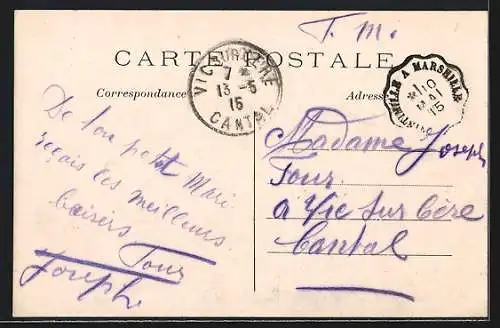 T. M.
CARTE POSTALE
VIC-SUR-CÈRE
7 *
13 -5
15
CANTAL
A MARSEILLE
10
MAI
15
Correspondance
Adresse
De ton petit Mari
reçois les meilleurs
baisers Tour
Joseph
Madame Joseph
Tour
a Vic sur Cère
Cantal